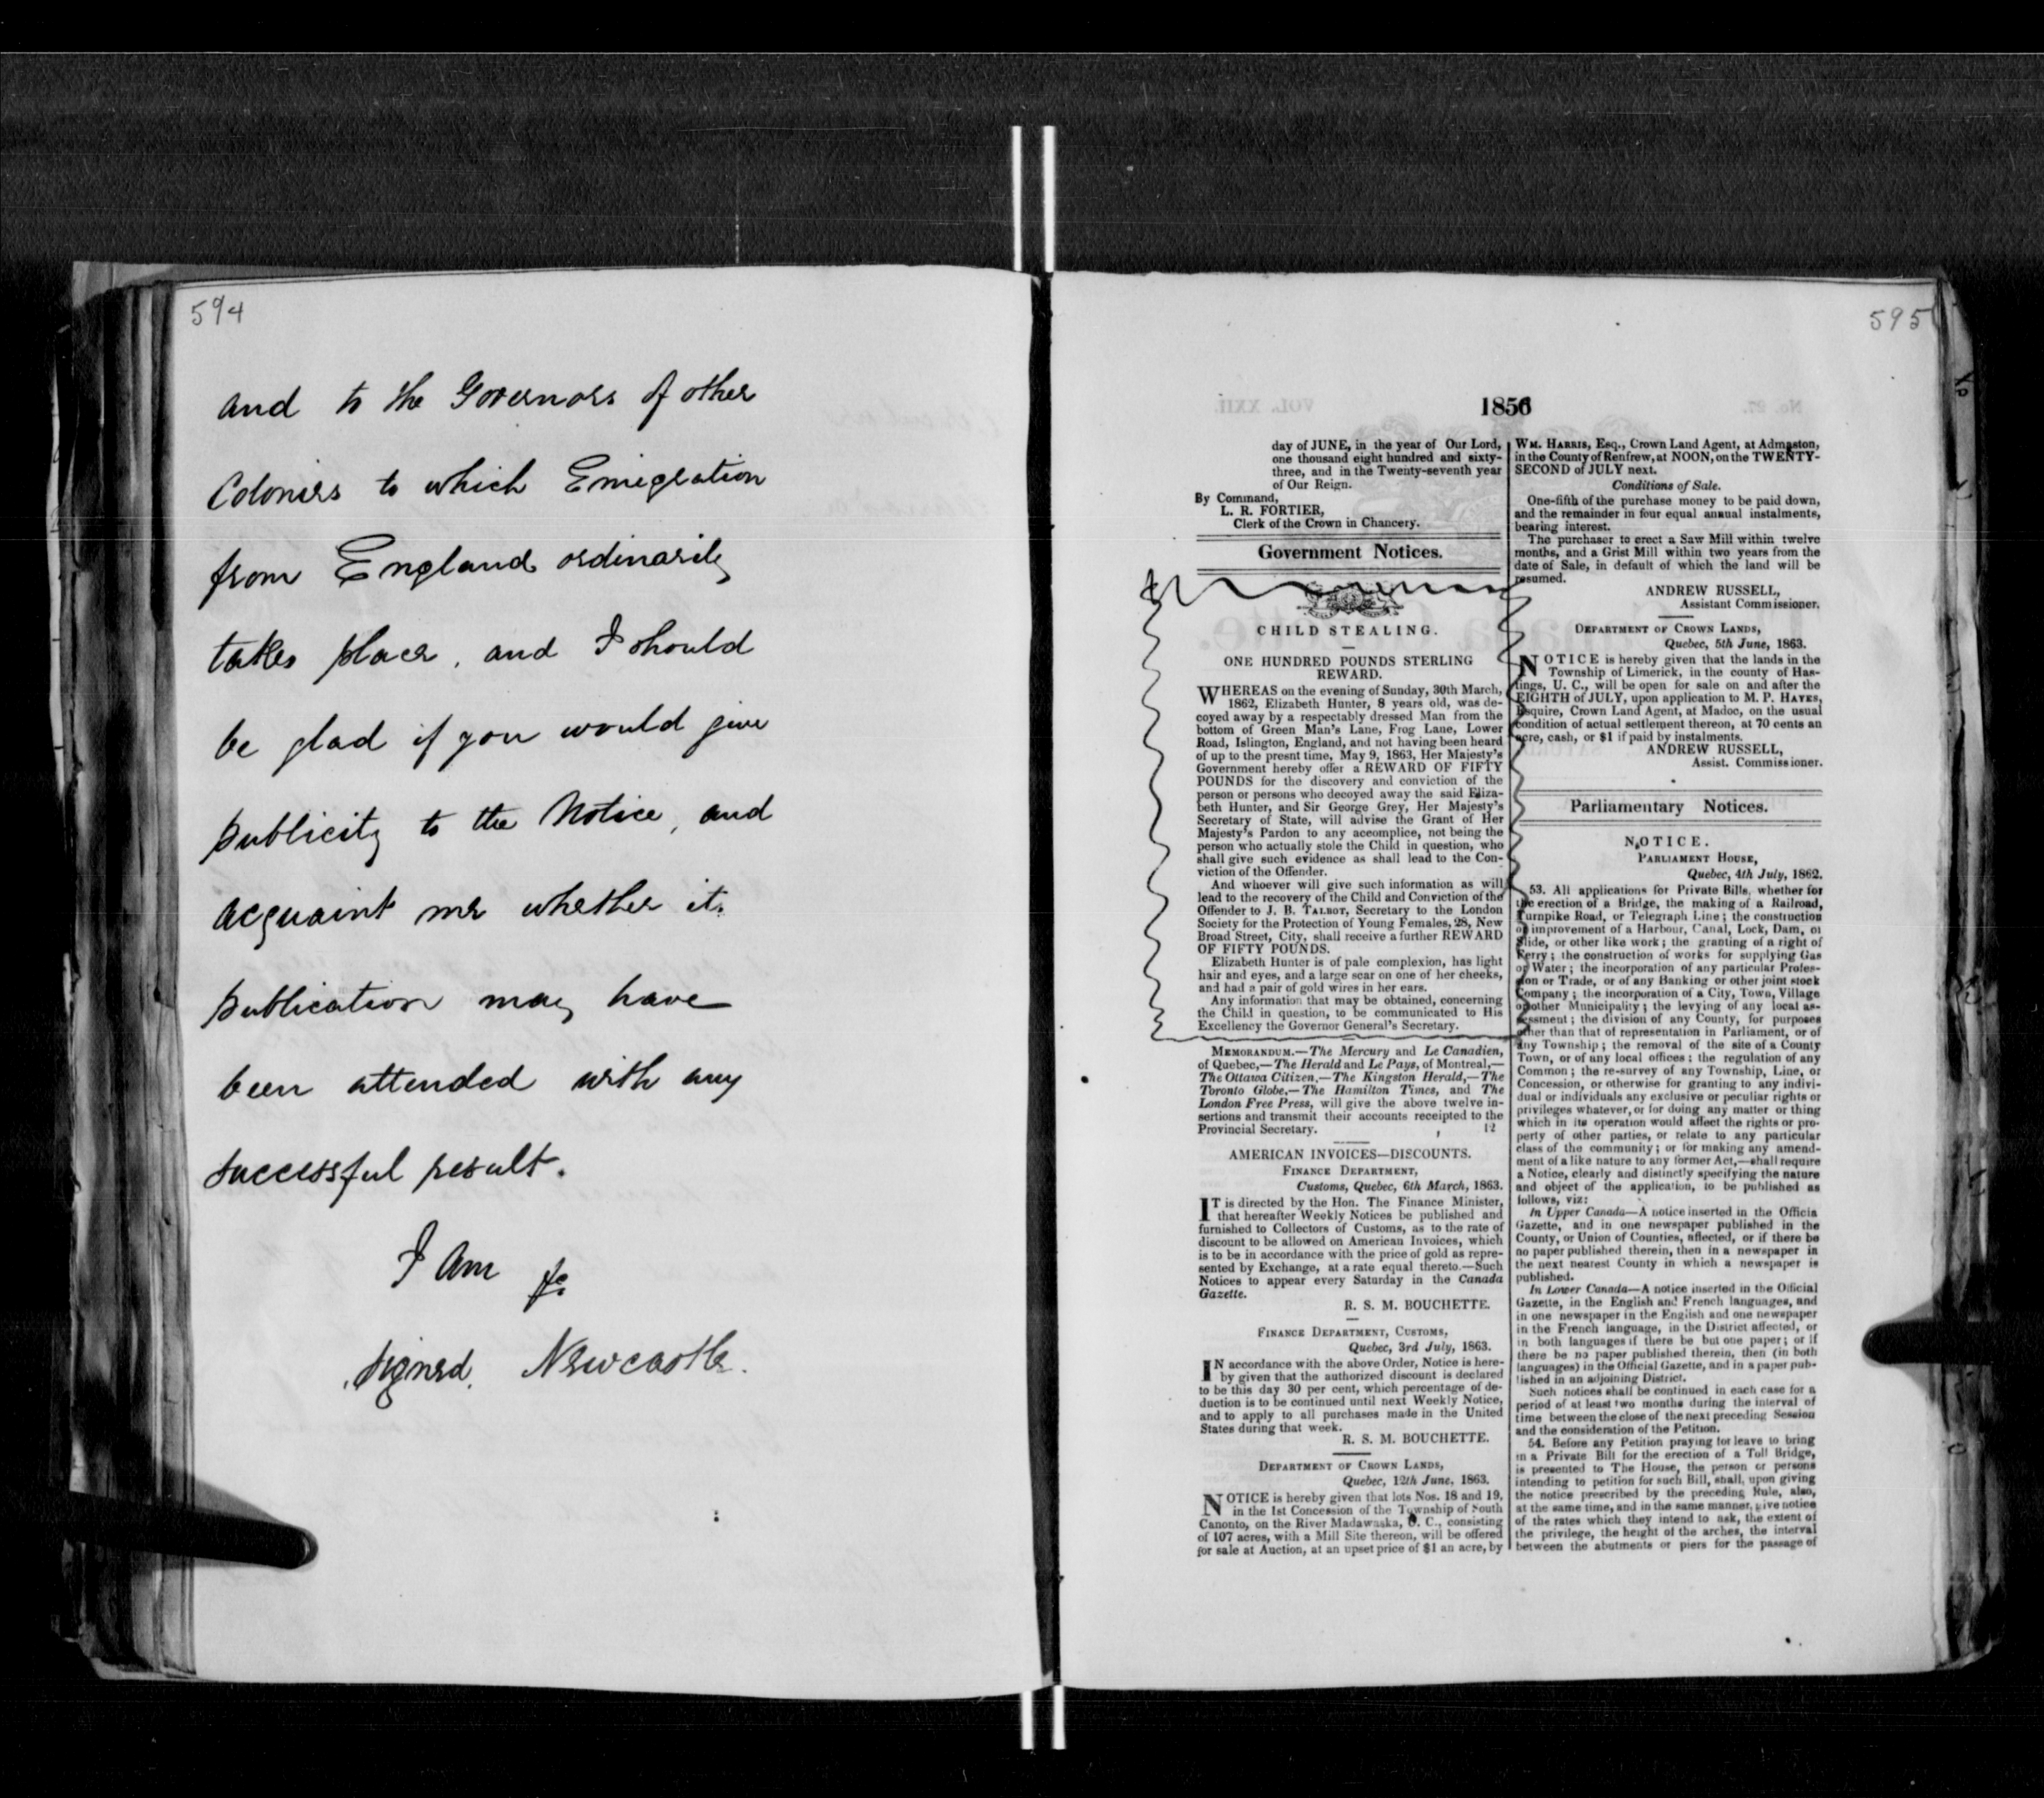 594
and to the Governors of other
Colonies to which Emigration
from England ordinarily
takes place, and I should
be glad if you would give
publicity to the Notice, and
acquaint me whether it.
publication may have
been attended with any
successful result.
I am &c
signed, Newcastle.
595
1856
day of JUNE, in the year of Our Lord,
one thousand eight hundred and sixty-
three, and in the Twenty-seventh year
of Our Reign.
By Command,
L. R. FORTIER,
Clerk of the Crown in Chancery.
Government Notices.
CHILD STEALING.
ONE HUNDRED POUNDS STERLING
REWARD.
WHEREAS on the evening of Sunday, 30th March,
1862, Elizabeth Hunter, 8 years old, was de-
coyed away by a respectably dressed Man from the
bottom of Green Man's Lane, Frog Lane, Lower
Road, Islington, England, and not having been heard
of up to the presnt time, May 9, 1863, Her Majesty's
Government hereby offer a REWARD OF FIFTY
POUNDS for the discovery and conviction of the
person or persons who decoyed away the said Eliza-
beth Hunter, and Sir George Grey, Her Majesty's
Secretary of State, will advise the Grant of Her
Majesty's Pardon to any accomplice, not being the
person who actually stole the Child in question, who
shall give such evidence as shall lead to the Con-
viction of the Offender.
And whoever will give such information as will
lead to the recovery of the Child and Conviction of the
Offender to J. B. TALBOT, Secretary to the London
Society for the Protection of Young Females, 28, New
Broad Street, City, shall receive a further REWARD
OF FIFTY POUNDS.
Elizabeth Hunter is of pale complexion, has light
hair and eyes, and a large scar on one of her cheeks,
and had a pair of gold wires in her ears.
Any information that may be obtained, concerning
the Child in question, to be communicated to His
Excellency the Governor General's Secretary.
MEMORANDUM.—The Mercury and Le Canadien,
of Quebec,—The Herald and Le Pays, of Montreal,—
The Ottawa Citizen,—The Kingston Herald,—The
Toronto Globe,—The Hamilton Times, and The
London Free Press, will give the above twelve in-
sertions and transmit their accounts receipted to the
Provincial Secretary. 12
AMERICAN INVOICES—DISCOUNTS.
FINANCE DEPARTMENT,
Customs, Quebec, 6th March, 1863.
IT is directed by the Hon. The Finance Minister,
that hereafter Weekly Notices be published and
furnished to Collectors of Customs, as to the rate of
discount to be allowed on American Invoices, which
is to be in accordance with the price of gold as repre-
sented by Exchange, at a rate equal thereto.—Such
Notices to appear every Saturday in the Canada
Gazette.
R. S. M. BOUCHETTE.
FINANCE DEPARTMENT, CUSTOMS,
Quebec, 3rd July, 1863.
IN accordance with the above Order, Notice is here-
by given that the authorized discount is declared
to be this day 30 per cent, which percentage of de-
duction is to be continued until next Weekly Notice,
and to apply to all purchases made in the United
States during that week.
R. S. M. BOUCHETTE.
DEPARTMENT OF CROWN LANDS,
Quebec, 12th June, 1863.
NOTICE is hereby given that lots Nos. 18 and 19,
in the 1st Concession of the Township of South
Canonto, on the River Madawaska, U. C., consisting
of 107 acres, with a Mill Site thereon, will be offered
for sale at Auction, at an upset price of $1 an acre, by
WM. HARRIS, Esq., Crown Land Agent, at Admaston,
in the County of Renfrew, at NOON, on the TWENTY-
SECOND of JULY next.
Conditions of Sale.
One-fifth of the purchase money to be paid down,
and the remainder in four equal annual instalments,
bearing interest.
The purchaser to erect a Saw Mill within twelve
months, and a Grist Mill within two years from the
date of Sale, in default of which the land will be
resumed.
ANDREW RUSSELL,
Assistant Commissioner.
DEPARTMENT OF CROWN LANDS,
Quebec, 5th June, 1863.
NOTICE is hereby given that the lands in the
Township of Limerick, in the county of Has-
tings, U. C., will be open for sale on and after the
EIGHTH of JULY, upon application to M. P. HAYES,
Esquire, Crown Land Agent, at Madoc, on the usual
condition of actual settlement thereon, at 70 cents an
acre, cash, or $1 if paid by instalments.
ANDREW RUSSELL,
Assist. Commissioner.
Parliamentary Notices.
NOTICE.
PARLIAMENT HOUSE,
Quebec, 4th July, 1862.
53. All applications for Private Bills, whether for
the erection of a Bridge, the making of a Railroad,
Turnpike Road, or Telegraph Line; the construction
or improvement of a Harbour, Canal, Lock, Dam, or
Slide, or other like work; the granting of a right of
Ferry; the construction of works for supplying Gas
or Water; the incorporation of any particular Profes-
sion or Trade, or of any Banking or other joint stock
Company; the incorporation of a City, Town, Village
or other Municipality; the levying of any local as-
sessment; the division of any County, for purposes
other than that of representation in Parliament, or of
any Township; the removal of the site of a County
Town, or of any local offices; the regulation of any
Common; the re-survey of any Township, Line, or
Concession, or otherwise for granting to any indivi-
dual or individuals any exclusive or peculiar rights or
privileges whatever, or for doing any matter or thing
which in its operation would affect the rights or pro-
perty of other parties, or relate to any particular
class of the community; or for making any amend-
ment of a like nature to any former Act,—shall require
a Notice, clearly and distinctly specifying the nature
and object of the application, to be published as
follows, viz:
In Upper Canada—A notice inserted in the Officia
Gazette, and in one newspaper published in the
County, or Union of Counties, affected, or if there be
no paper published therein, then in a newspaper in
the next nearest County in which a newspaper is
published.
In Lower Canada—A notice inserted in the Official
Gazette, in the English and French languages, and
in one newspaper in the English and one newspaper
in the French language, in the District affected, or
in both languages if there be but one paper; or if
there be no paper published therein, then (in both
languages) in the Official Gazette, and in a paper pub-
lished in an adjoining District.
Such notices shall be continued in each case for a
period of at least two months during the interval of
time between the close of the next preceding Session
and the consideration of the Petition.
54. Before any Petition praying for leave to bring
in a Private Bill for the erection of a Toll Bridge,
is presented to The House, the person or persons
intending to petition for such Bill, shall, upon giving
the notice prescribed by the preceding Rule, also,
at the same time, and in the same manner, give notice
of the rates which they intend to ask, the extent of
the privilege, the height of the arches, the interval
between the abutments or piers for the passage of